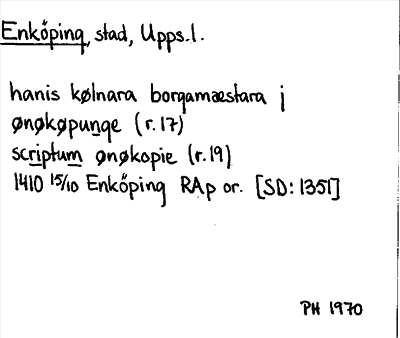 Enköping, stad, Upps.l.
hanis kølnara borgamæstara j
ønøkøpunge (r.17)
scriptum ønøkopie (r.19)
1410 15/10 Enköping RAp or. [SD: 1351]
PH 1970